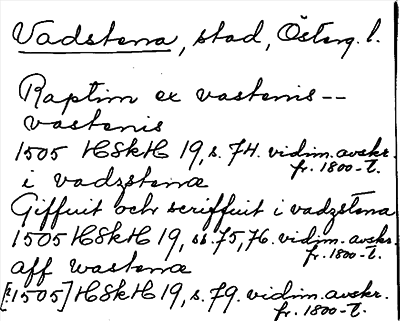 Vadstena, stad, Österg. l.
Raptim ex vastenis --
vastenis
1505 HSkH 19, s. 74. vidim. avskr.
fr. 1800-t.
i vadzstena
Giffuit och scriffuit i vadzstena
1505 HSkH 19, ss. 75, 76. vidim. avskr.
fr. 1800-t.
aff wastena
[1505] HSkH 19, s. 79. vidim. avskr.
fr. 1800-t.